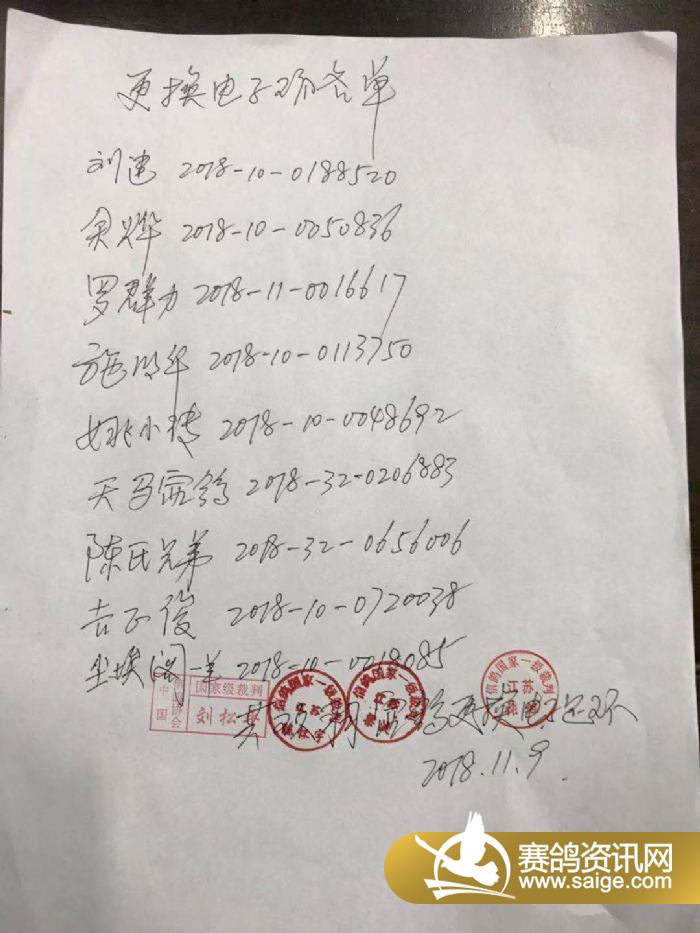 更换电子环名单
刘建 2018-10-0188520
吴烨 2018-10-0050836
罗群力 2018-11-0016617
施明华 2018-10-0113750
姚小转 2018-10-0048692
天马赛鸽 2018-32-0206883
陈氏兄弟 2018-32-0656006
吉正俊 2018-10-0720038
尘埃阁 2018-10-0018085
中国
协会
国家级裁判
刘松
信鸽国家一级裁判
江苏
信鸽国家一级裁判
信鸽国家一级裁判
江苏
更换电子环
2018.11.9.
赛鸽资讯网
www.saige.com